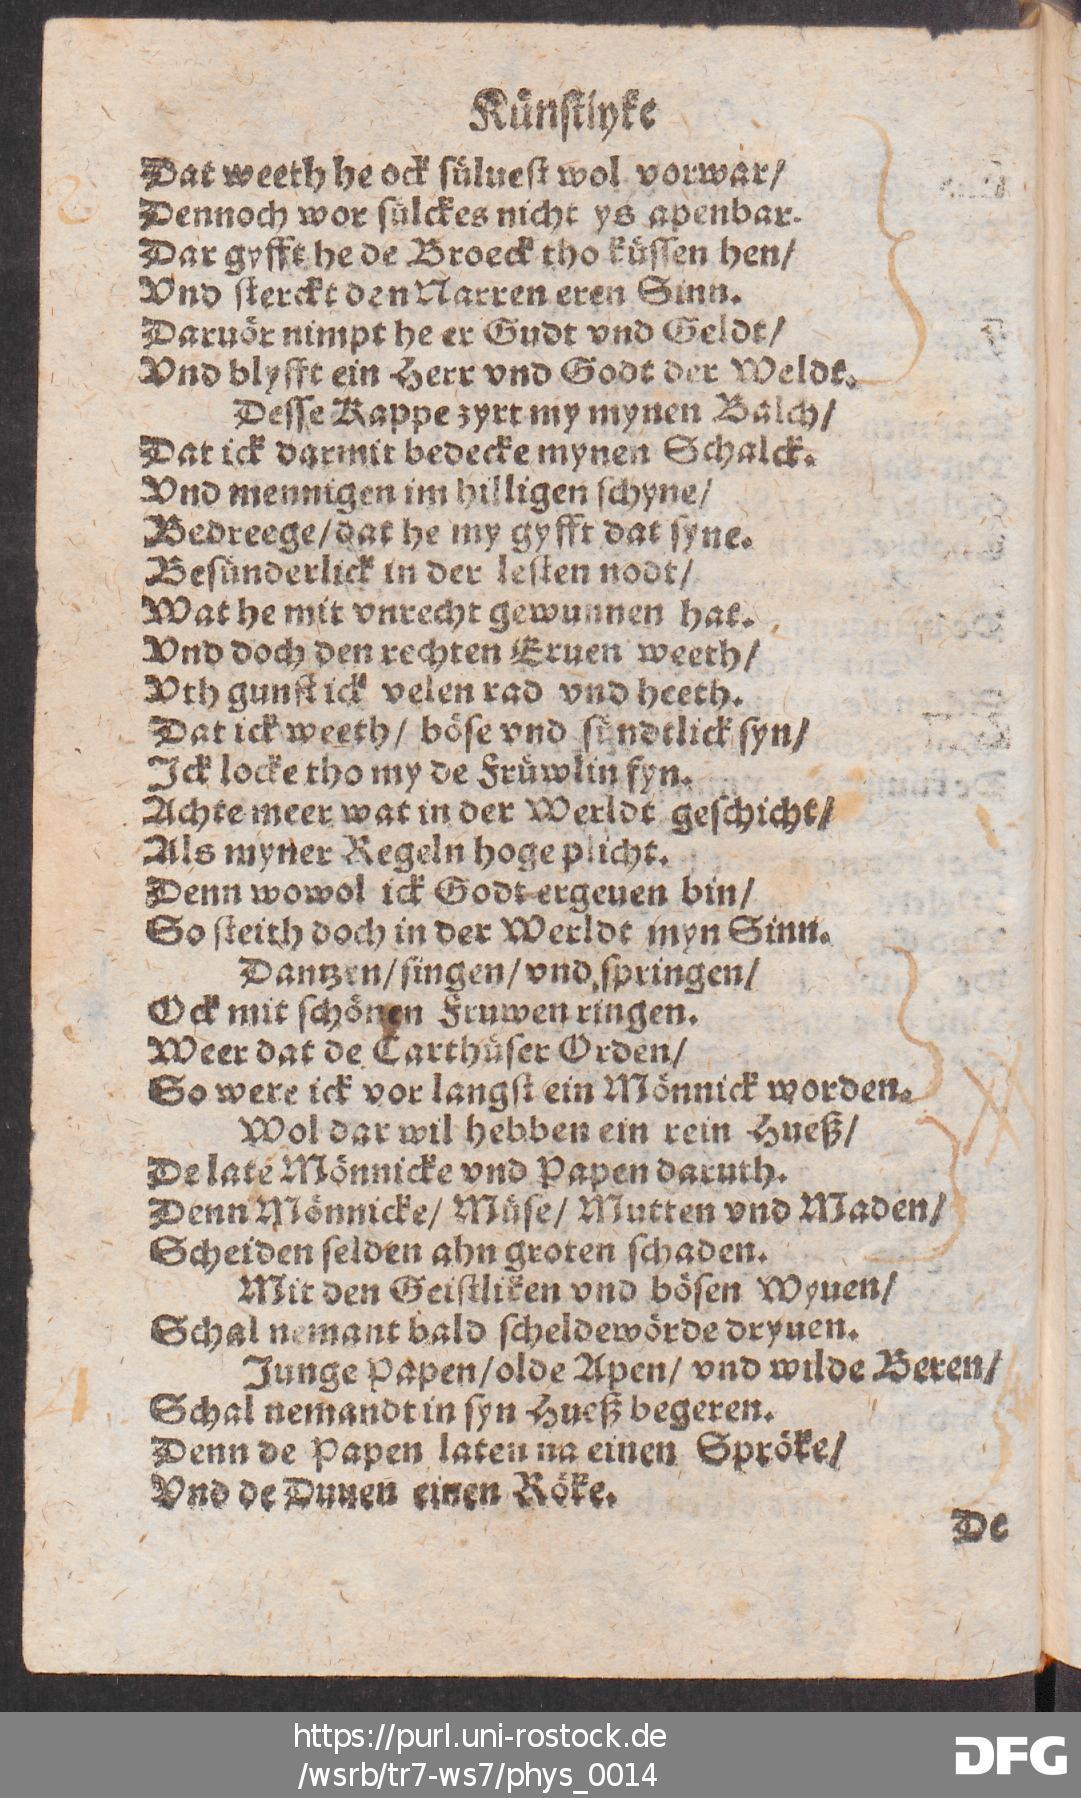 Künstlyke
Dat weeth he ock süluest wol vorwar/
Dennoch wor sülckes nicht ys apenbar.
Dar gyfft he de Broeck tho küssen hen/
Vnd sterckt den Narren eren Sinn.
Daruör nimpt he er Gudt vnd Geldt/
Vnd blyfft ein Herr vnd Godt der Weldt.
Desse Kappe zyrt my mynen Balch/
Dat ick darmit bedecke mynen Schalck.
Vnd mennigen im hilligen schyne/
Bedreege/dat he my gyfft dat syne.
Besünderlick in der lesten nodt/
Wat he mit vnrecht gewunnen hat.
Vnd doch den rechten Eruen weeth/
Vth gunst ick velen rad vnd heeth.
Dat ick weeth/ böse vnd sündtlick syn/
Ick locke tho my de Früwlin fyn.
Achte meer wat in der Werldt geschicht/
Als myner Regeln hoge plicht.
Denn wowol ick Godt ergeuen bin/
So steith doch in der Werldt myn Sinn.
Dantzen/singen/vnd springen/
Ock mit schönen Fruwen ringen.
Weer dat de Carthüser Orden/
So were ick vor langst ein Mönnick worden.
Wol dar wil hebben ein rein Hueß/
De late Mönnicke vnd Papen daruth.
Denn Mönnicke/ Müse/ Mutten vnd Maden/
Scheiden selden ahn groten schaden.
Mit den Geistliken vnd bösen Wyuen/
Schal nemant bald scheldewörde dryuen.
Junge Papen/olde Apen/ vnd wilde Beren/
Schal nemandt in syn Hueß begeren.
Denn de Papen laten na einen Spröke/
Vnd de Duuen einen Röke.
De
https://purl.uni-rostock.de
/wsrb/tr7-ws7/phys_0014
DFG